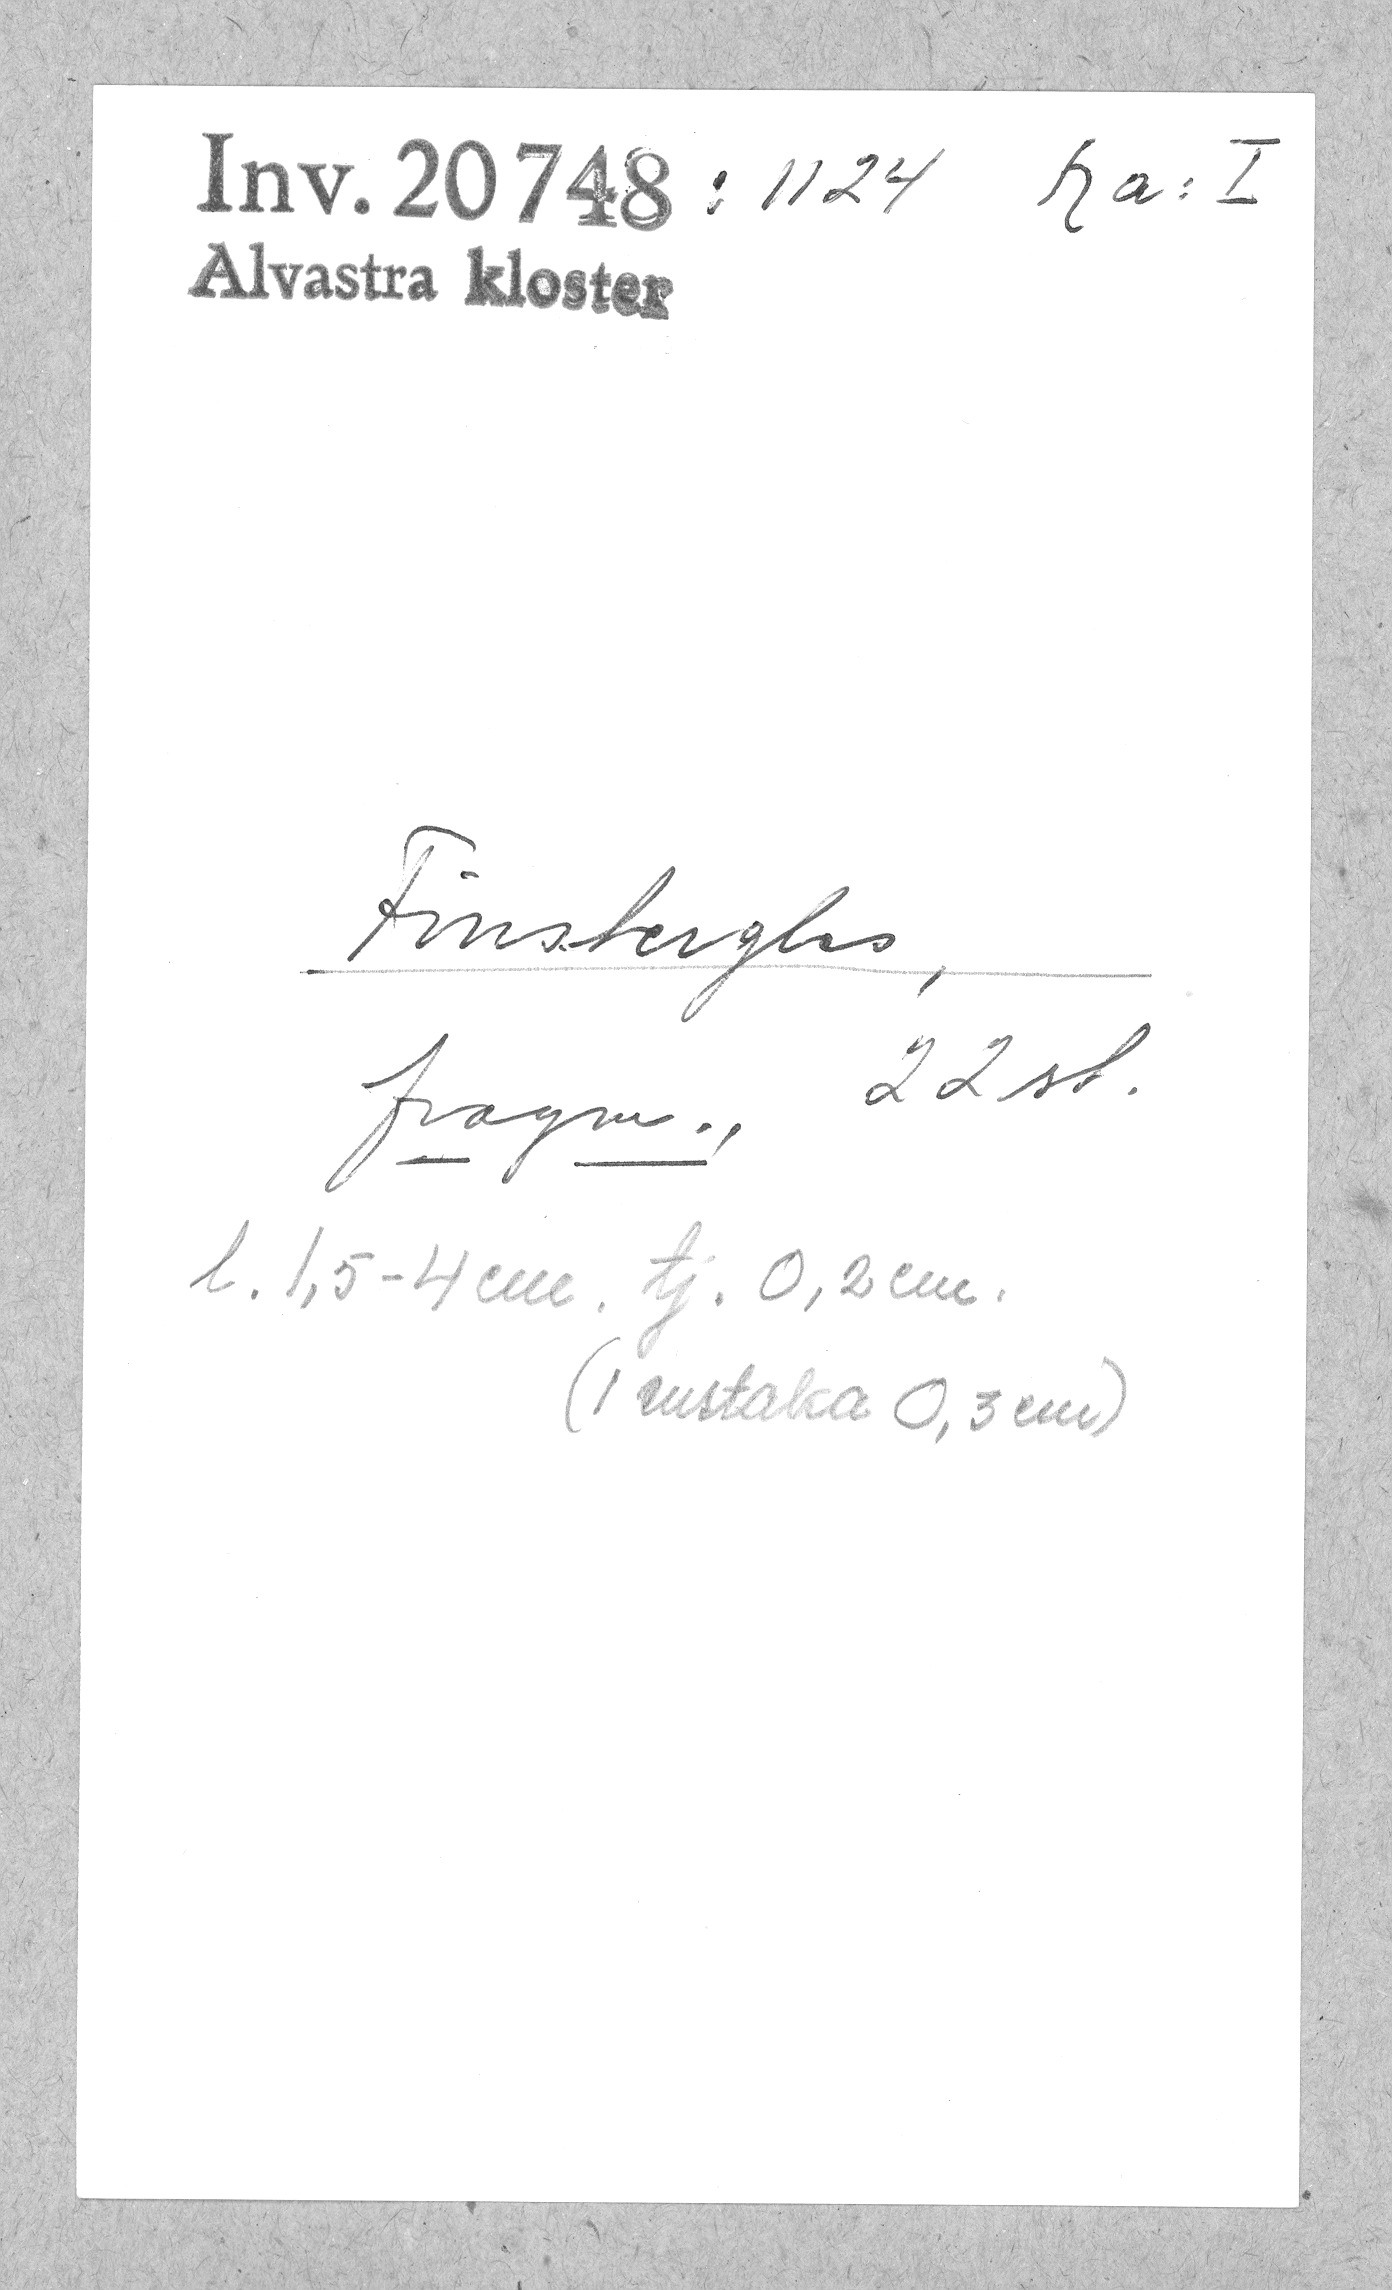 Inv. 20748 : 1124 ha: I
Alvastra kloster
Fönsterglas,
fragm., 22 st.
l. 1,5-4 cm. tj. 0,2 cm.
(1 enstaka 0,3 cm)